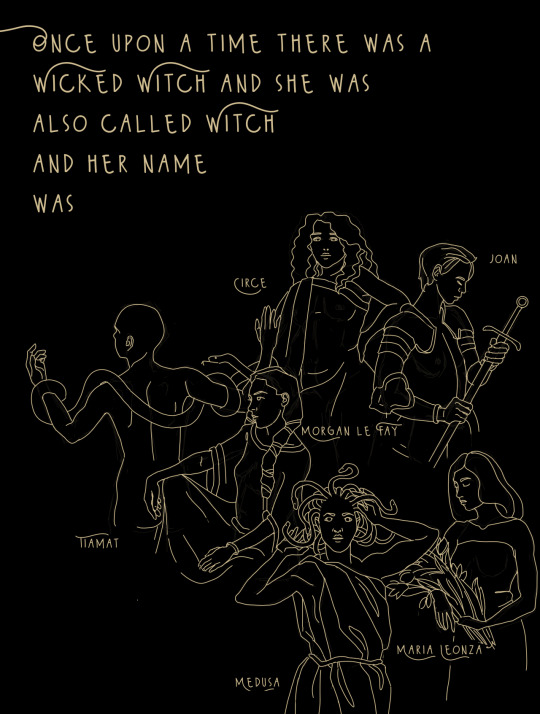 ONCE UPON A TIME THERE WAS A
WICKED WITCH AND SHE WAS
ALSO CALLED WITCH
AND HER NAME
WAS
JOAN
CIRCE
MORGAN LE FAY
TIAMAT
MARIA LEONZA
MEDUSA